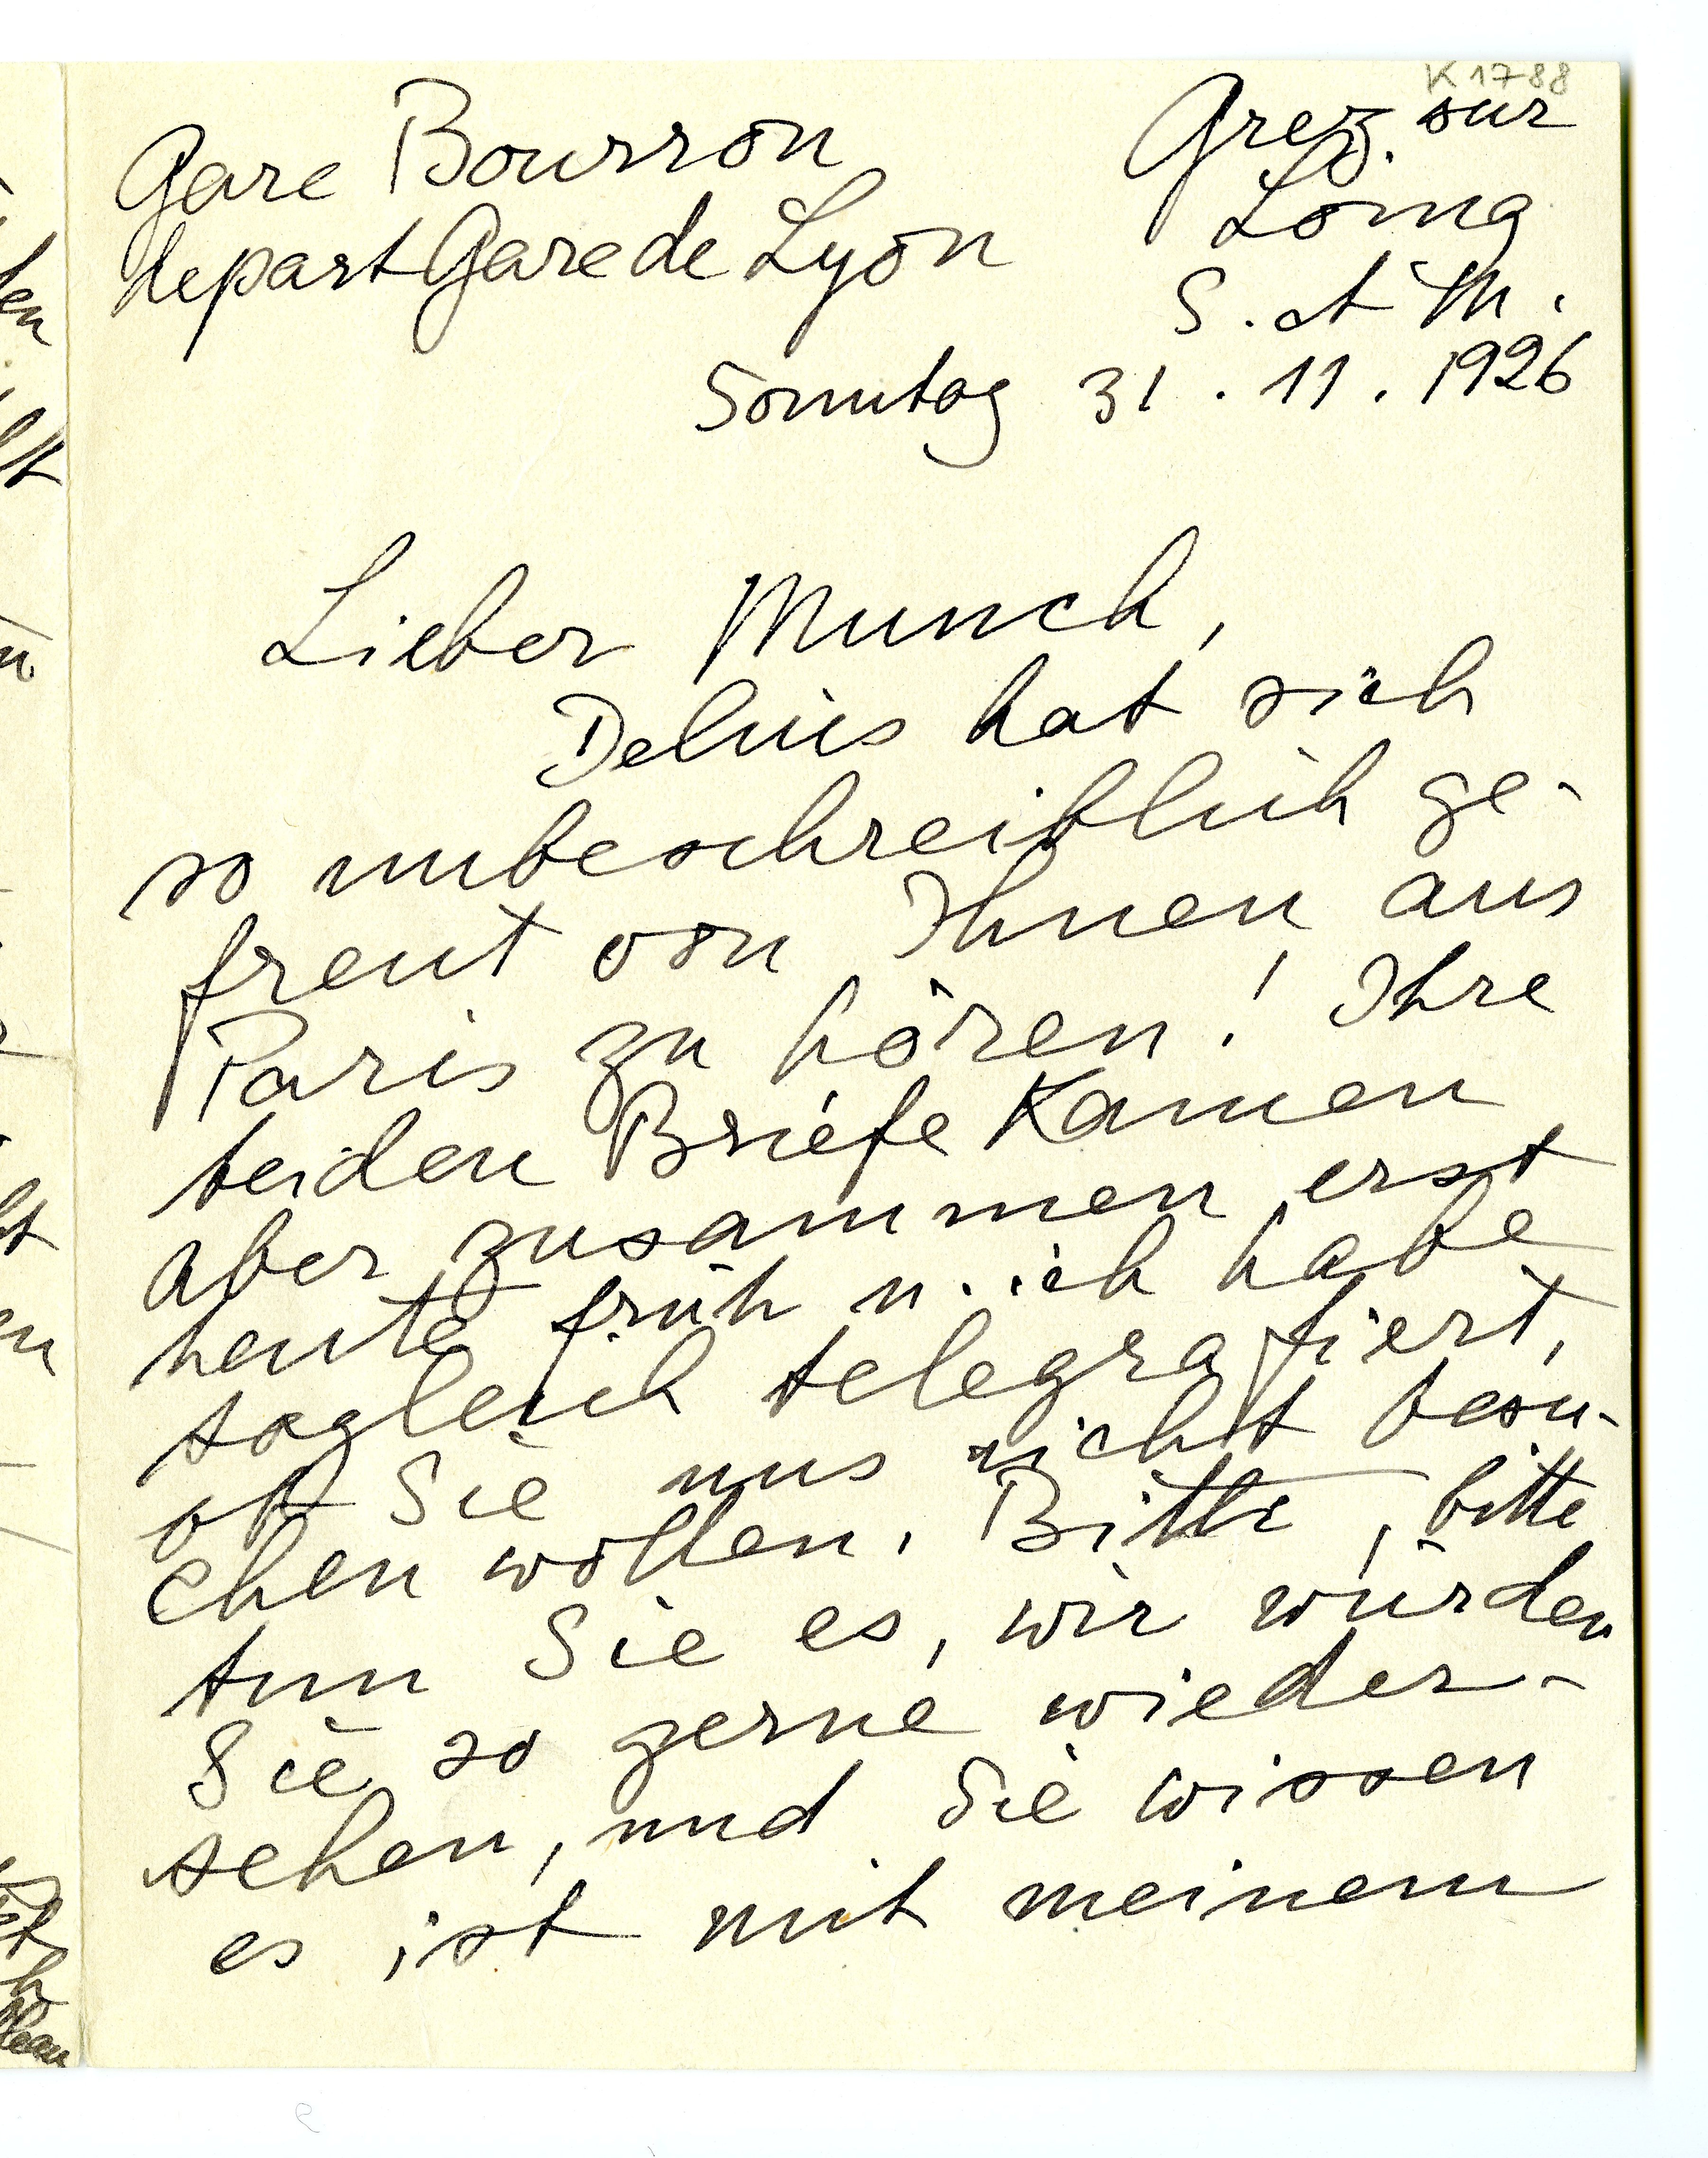 K 1788
Gare Bourron
depart Gare de Lyon
Grez. sur
Loing
S. et M.
Sonntag 31. 11. 1926
Lieber Munch,
Delius hat sich
so unbeschreiblich ge-
freut von Ihnen aus
Paris zu hören! Ihre
beiden Briefe kamen
aber zusammen erst
heute früh u. ich habe
sogleich telegrafiert,
ob Sie uns nicht besu-
chen wollen. Bitte, bitte
tun Sie es, wir würden
Sie so gerne wieder-
sehen, und Sie wissen
es ist mit meinem